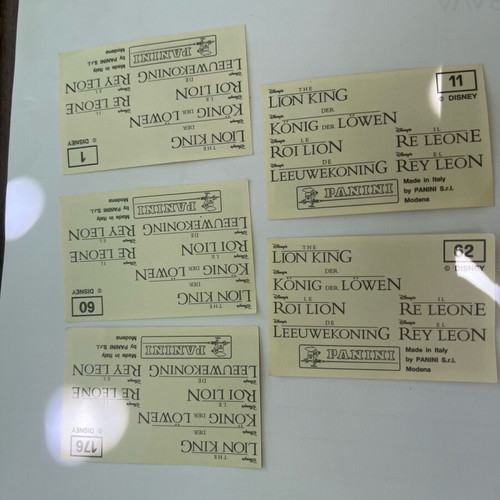 Disney's
THE
LION KING
DER
KÖNIG DER LÖWEN
LE
ROI LION
DE
LEEUWEKONING
IL
RE LEONE
EL
REY LEON
PANINI
Made in Italy
by PANINI S.r.l.
Modena
1
© DISNEY
Disney's
THE
LION KING
DER
KÖNIG DER LÖWEN
LE
ROI LION
DE
LEEUWEKONING
IL
RE LEONE
EL
REY LEON
PANINI
Made in Italy
by PANINI S.r.l.
Modena
60
© DISNEY
Disney's
THE
LION KING
DER
KÖNIG DER LÖWEN
LE
ROI LION
DE
LEEUWEKONING
IL
RE LEONE
EL
REY LEON
PANINI
Made in Italy
by PANINI S.r.l.
Modena
176
© DISNEY
Disney's
THE
LION KING
11
© DISNEY
DER
KÖNIG DER LÖWEN
LE
ROI LION
IL
RE LEONE
DE
LEEUWEKONING
EL
REY LEON
PANINI
Made in Italy
by PANINI S.r.l.
Modena
Disney's
THE
LION KING
62
© DISNEY
DER
KÖNIG DER LÖWEN
LE
ROI LION
IL
RE LEONE
DE
LEEUWEKONING
EL
REY LEON
PANINI
Made in Italy
by PANINI S.r.l.
Modena